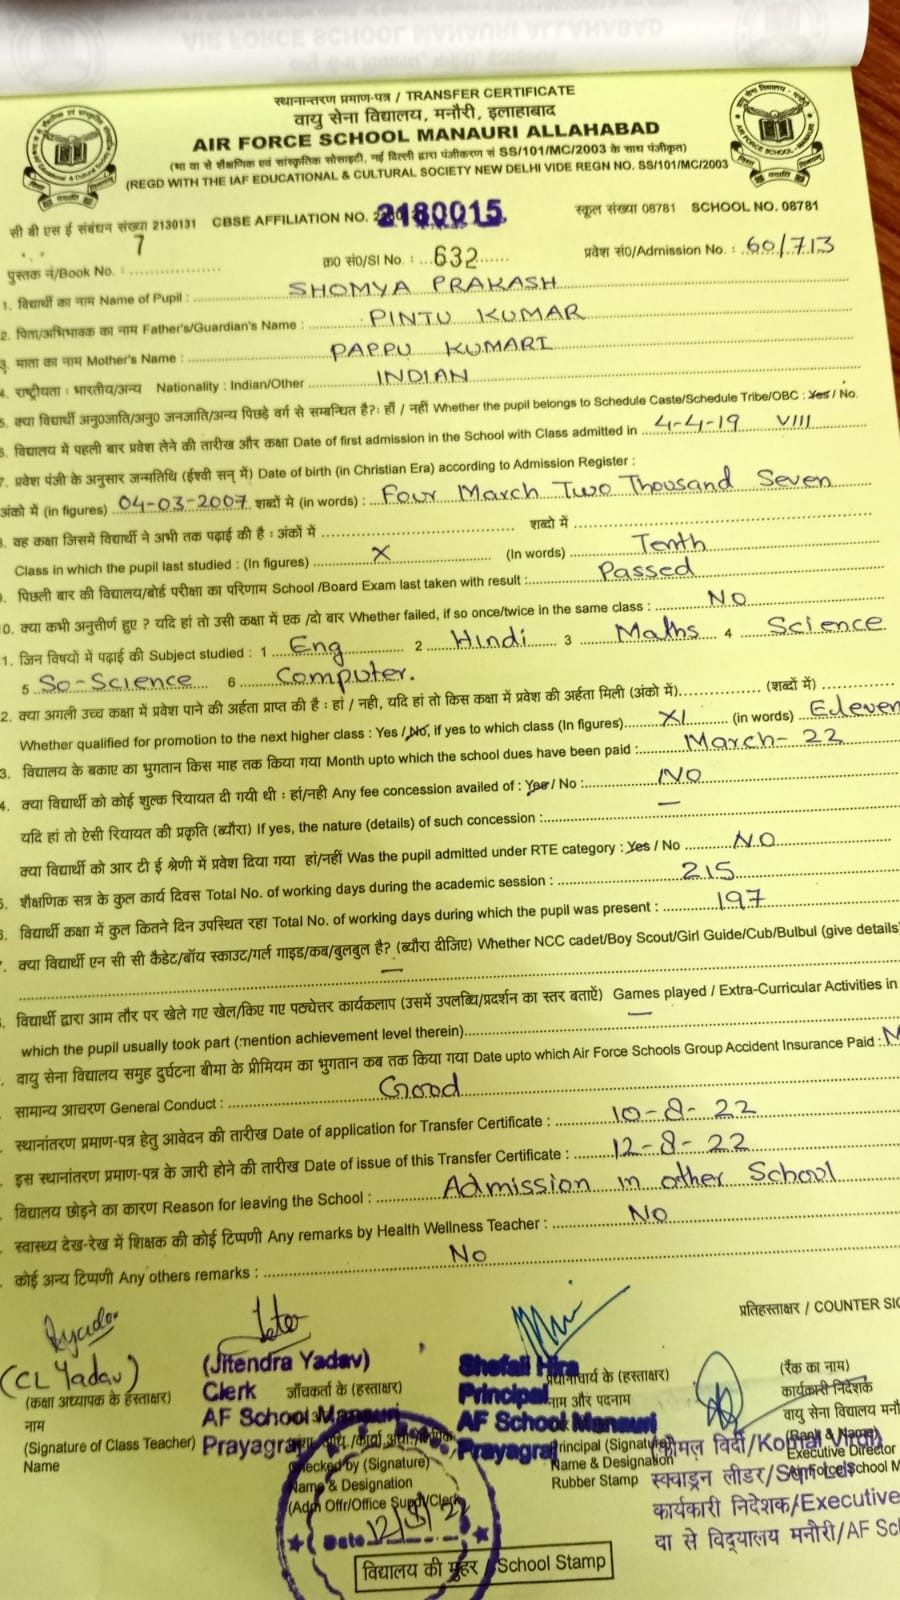 स्थानान्तरण प्रमाण-पत्र / TRANSFER CERTIFICATE
वायु सेना विद्यालय, मनौरी, इलाहाबाद
AIR FORCE SCHOOL MANAURI ALLAHABAD
(भा वा से शैक्षणिक एवं सांस्कृतिक सोसाइटी, नई दिल्ली द्वारा पंजीकरण सं SS/101/MC/2003 के साथ पंजीकृत)
(REGD WITH THE IAF EDUCATIONAL & CULTURAL SOCIETY NEW DELHI VIDE REGN NO. SS/101/MC/2003
सी बी एस ई संबंधन संख्या 2130131 CBSE AFFILIATION NO. 2180015. स्कूल संख्या 08781 SCHOOL NO. 08781
पुस्तक नं/Book No. : 7 क्र० सं०/Sl No. : 632 प्रवेश सं०/Admission No. : 60/713
1. विद्यार्थी का नाम Name of Pupil : SHOMYA PRAKASH
2. पिता/अभिभावक का नाम Father's/Guardian's Name : PINTU KUMAR
3. माता का नाम Mother's Name : PAPPU KUMARI
4. राष्ट्रीयता : भारतीय/अन्य Nationality : Indian/Other INDIAN
5. क्या विद्यार्थी अनु0जाति/अनु0 जनजाति/अन्य पिछड़े वर्ग से सम्बन्धित है?: हाँ / नहीं Whether the pupil belongs to Schedule Caste/Schedule Tribe/OBC : Yes / No.
6. विद्यालय में पहली बार प्रवेश लेने की तारीख और कक्षा Date of first admission in the School with Class admitted in 4-4-19 VIII
7. प्रवेश पंजी के अनुसार जन्मतिथि (ईश्वी सन् में) Date of birth (in Christian Era) according to Admission Register :
अंको में (in figures) 04-03-2007 शब्दों मे (in words) : Four March Two Thousand Seven
. वह कक्षा जिसमें विद्यार्थी ने अभी तक पढ़ाई की है : अंकों में शब्दो में
Class in which the pupil last studied : (In figures) X (In words) Tenth
. पिछली बार की विद्यालय/बोर्ड परीक्षा का परिणाम School /Board Exam last taken with result : Passed
0. क्या कभी अनुत्तीर्ण हुए ? यदि हां तो उसी कक्षा में एक /दो बार Whether failed, if so once/twice in the same class : No
1. जिन विषयों में पढ़ाई की Subject studied : 1 Eng 2 Hindi 3 Maths 4 Science
5 So-Science 6 Computer.
2. क्या अगली उच्च कक्षा में प्रवेश पाने की अर्हता प्राप्त की है : हां / नही, यदि हां तो किस कक्षा में प्रवेश की अर्हता मिली (अंको में) (शब्दों में)
Whether qualified for promotion to the next higher class : Yes / No, if yes to which class (In figures) XI (in words) Eleven
3. विद्यालय के बकाए का भुगतान किस माह तक किया गया Month upto which the school dues have been paid : March-22
4. क्या विद्यार्थी को कोई शुल्क रियायत दी गयी थी : हां/नही Any fee concession availed of : Yes / No : NO
यदि हां तो ऐसी रियायत की प्रकृति (ब्यौरा) If yes, the nature (details) of such concession : —
क्या विद्यार्थी को आर टी ई श्रेणी में प्रवेश दिया गया हां/नहीं Was the pupil admitted under RTE category : Yes / No NO
5. शैक्षणिक सत्र के कुल कार्य दिवस Total No. of working days during the academic session : 215
6. विद्यार्थी कक्षा में कुल कितने दिन उपस्थित रहा Total No. of working days during which the pupil was present : 197
7. क्या विद्यार्थी एन सी सी कैडेट/बॉय स्काउट/गर्ल गाइड/कब/बुलबुल है? (ब्यौरा दीजिए) Whether NCC cadet/Boy Scout/Girl Guide/Cub/Bulbul (give details)
—
. विद्यार्थी द्वारा आम तौर पर खेले गए खेल/किए गए पठ्येत्तर कार्यकलाप (उसमें उपलब्धि/प्रदर्शन का स्तर बताऐं) Games played / Extra-Curricular Activities in
which the pupil usually took part (mention achievement level therein) —
. वायु सेना विद्यालय समुह दुर्घटना बीमा के प्रीमियम का भुगतान कब तक किया गया Date upto which Air Force Schools Group Accident Insurance Paid :
. सामान्य आचरण General Conduct : Good
. स्थानांतरण प्रमाण-पत्र हेतु आवेदन की तारीख Date of application for Transfer Certificate : 10-8-22
. इस स्थानांतरण प्रमाण-पत्र के जारी होने की तारीख Date of issue of this Transfer Certificate : 12-8-22
. विद्यालय छोड़ने का कारण Reason for leaving the School : Admission in other School
. स्वास्थ्य देख-रेख में शिक्षक की कोई टिप्पणी Any remarks by Health Wellness Teacher : No
. कोई अन्य टिप्पणी Any others remarks : No
प्रतिहस्ताक्षर / COUNTER SIG
(CL Yadav) (Jitendra Yadav) Shefali Hira (रैंक का नाम)
(कक्षा अध्यापक के हस्ताक्षर) Clerk जाँचकर्ता के (हस्ताक्षर) Principal प्रधानाचार्य के (हस्ताक्षर) कार्यकारी निदेशक
नाम AF School Manauri AF School Manauri नाम और पदनाम वायु सेना विद्यालय
(Signature of Class Teacher) Prayagraj Prayagraj Principal (Signature) कोमल विर्दी/Komal Virdi (Rank & Name)
Name Checked by (Signature) Name & Designation Executive Director
Name & Designation Rubber Stamp स्क्वाड्रन लीडर/Sqn Ldr Air Force School M
(Adm Offr/Office Supdt/Clerk) कार्यकारी निदेशक/Executive
Date 12/8/22 वा से विद्यालय मनौरी/AF Sc
विद्यालय की मुहर / School Stamp